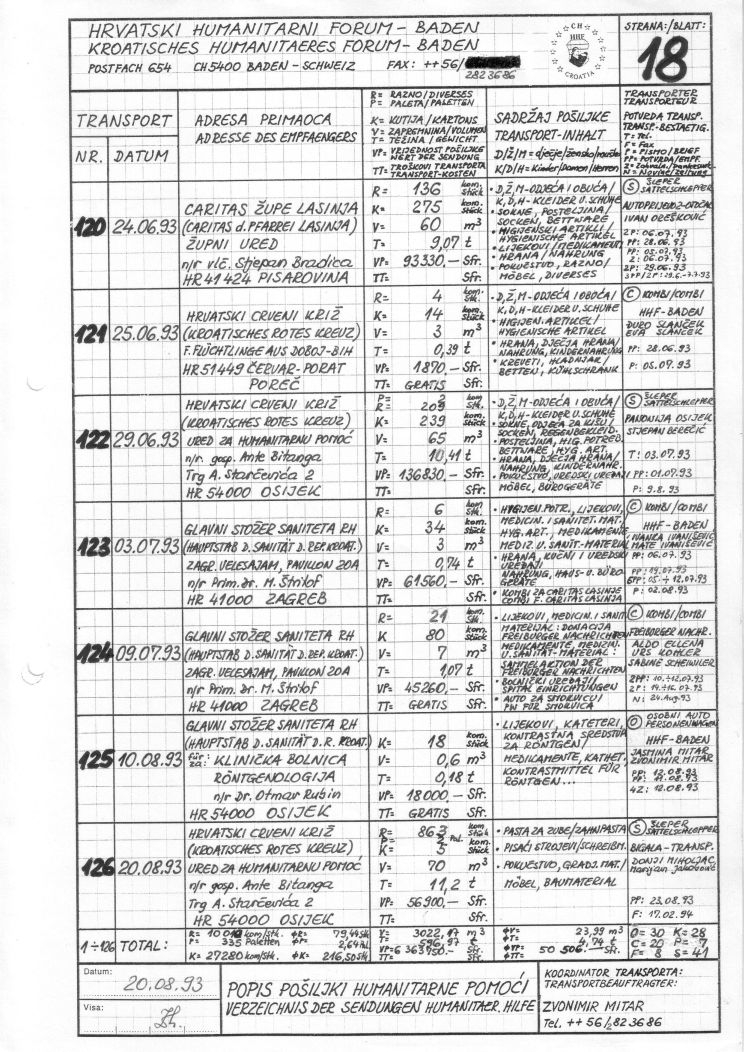 HRVATSKI HUMANITARNI FORUM – BADEN
KROATISCHES HUMANITAERES FORUM – BADEN
POSTFACH 654 CH 5400 BADEN – SCHWEIZ FAX: ++56/
282 36 86
CH
HHF
CROATIA
STRANA:/BLATT:
18
TRANSPORT
NR. DATUM
ADRESA PRIMAOCA
ADRESSE DES EMPFAENGERS
R= RAZNO/DIVERSES
P= PALETA/PALETTEN
K= KUTIJA/KARTONS
V= ZAPREMNINA/VOLUMEN
T= TEŽINA/GEWICHT
VP= VRIJEDNOST POŠILJKE
WERT DER SENDUNG
TT= TROŠKOVI TRANSPORTA
TRANSPORT-KOSTEN
SADRŽAJ POŠILJKE
TRANSPORT-INHALT
D/Ž/M= dječje/žensko/muško
K/D/H= Kinder/Damen/Herren
TRANSPORTER
TRANSPORTEUR
POTVRDA TRANSP.
TRANSP.-BESTAETIG.
T= Tel.
F= Fax
P= PISMO/BRIEF
PP= POTVRDA/EMPF.
N= Novine/Zeitung
120 24.06.93
CARITAS ŽUPE LASINJA
(CARITAS d. PFARREI LASINJA)
ŽUPNI URED
n/r vlč. Stjepan Bradica
HR 41 424 PISAROVINA
R= 136 kom. Stück
K= 275
V= 60 m³
T= 9,07 t
VP= 93330.– Sfr.
TT= Sfr.
• D,Ž,M-ODJEĆA I OBUĆA/
K,D,H-KLEIDER U. SCHUHE
• SOKNE, POSTELJINA/
SOCKEN, BETTWARE
• HIGIJENSKI ARTIKLI/
HYGIENISCHE ARTIKEL
• LIJEKOVI/MEDIKAMENTI
• HRANA/NAHRUNG
• POKUĆSTVO, RAZNO/
MÖBEL, DIVERSES
(S) ŠLEPER
SATTELSCHLEPPER
AUTOPRIJEVOZ-OTOČAC
IVAN OREŠKOVIĆ
2P: 06.07.93
PP: 28.06.93
PP: 05.07.93
Z: 06.07.93
2P: 29.06.93
121 25.06.93
HRVATSKI CRVENI KRIŽ
(KROATISCHES ROTES KREUZ)
F. FLÜCHTLINGE AUS DOBOJ-BIH
HR 51449 ČERVAR-PORAT
POREČ
R= 4 kom. Stk.
K= 14 kom. Stück
V= 3 m³
T= 0,39 t
VP= 1870.– Sfr.
TT= GRATIS Sfr.
• D,Ž,M-ODJEĆA I OBUĆA/
K,D,H-KLEIDER U. SCHUHE
• HIGIJEN. ARTIKEL/
HYGIENISCHE ARTIKEL
• HRANA, DJEČJA HRANA/
NAHRUNG, KINDERNAHRUNG
• KREVETI, HLADNJAK/
BETTEN, KÜHLSCHRANK
(C) KOMBI/COMBI
HHF-BADEN
ĐURO SLANČEK
EVA SLANČEK
PP: 28.06.93
P: 05.07.93
122 29.06.93
HRVATSKI CRVENI KRIŽ
(KROATISCHES ROTES KREUZ)
URED ZA HUMANITARNU POMOĆ
n/r. gosp. Ante Bitanga
Trg A. Starčevića 2
HR 54000 OSIJEK
P= 2 kom
R= 209 Stk.
K= 239 kom. Stück
V= 65 m³
T= 10,41 t
VP= 136830.– Sfr.
TT= Sfr.
• D,Ž,M-ODJEĆA I OBUĆA/
K,D,H-KLEIDER U. SCHUHE
• SOKNE, ODJEĆA ZA KIŠU/
SOCKEN, REGENBEKLEID.
• POSTELJINA, HIG. POTREB.
BETTWARE, HYG. ART.
• HRANA, DJEČJA HRANA/
NAHRUNG, KINDERNAHR.
• POKUĆSTVO, UREDSKI UREĐAJI
MÖBEL, BÜROGERÄTE
(S) ŠLEPER
SATTELSCHLEPPER
PANONIJA OSIJEK
STJEPAN BEREČIĆ
T: 03.07.93
PP: 01.07.93
P: 9.8.93
123 03.07.93
GLAVNI STOŽER SANITETA RH
(HAUPTSTAB D. SANITÄT D. REP. KROAT.)
ZAGR. VELESAJAM, PAVILJON 20A
n/r Prim. dr. M. Štrkof
HR 41000 ZAGREB
R= 6 kom. Stk.
K= 34 kom. Stück
V= 3 m³
T= 0,74 t
VP= 61560.– Sfr.
TT= Sfr.
• HYGIJEN. POTR., LIJEKOVI,
MEDICIN. I SANITET. MAT./
HYG. ART., MEDIKAMENTE,
MEDIZ. U. SANIT.-MATERIAL
• HRANA, KUĆNI I UREDSKI
UREĐAJI
NAHRUNG, HAUS- U. BÜRO-
GERÄTE
• KOMBI ZA CARITAS LASINJE
COMBI F. CARITAS LASINJA
(C) KOMBI/COMBI
HHF-BADEN
IVANKA IVANIŠEVIĆ
MATE IVANIŠEVIĆ
PP: 06.07.93
PP: 19.07.93
P: 02.08.93
124 09.07.93
GLAVNI STOŽER SANITETA RH
(HAUPTSTAB D. SANITÄT D. REP. KROAT.)
ZAGR. VELESAJAM, PAVILJON 20A
n/r Prim. Dr. M. Štrkof
HR 41000 ZAGREB
R= 21 kom. Stk.
K= 80 kom. Stück
V= 7 m³
T= 1,07 t
VP= 45260.– Sfr.
TT= GRATIS Sfr.
• LIJEKOVI, MEDICIN. I SANIT.
MATERIJAL: DONACIJA
FREIBURGER NACHRICHTEN
MEDIKAMENTE, MEDIZIN.
U. SANITÄT-MATERIAL:
SAMMELAKTION DER
FREIBURGER NACHRICHTEN
• BOLNIČKI UREĐAJI/
SPITAL EINRICHTUNGEN
• AUTO ZA SMOKVICU/
PW FÜR SMOKVICA
(C) KOMBI/COMBI
FREIBURGER NACHR.
ALDO ELLENA
URS KOHLER
SABINE SCHEIWILER
2PP: 10.÷12.07.93
2P: 14÷16.07.93
N: 24.Aug.93
125 10.08.93
GLAVNI STOŽER SANITETA RH
(HAUPTSTAB D. SANITÄT D. R. KROAT.)
für/za: KLINIČKA BOLNICA
RÖNTGENOLOGIJA
n/r Dr. Otmar Rubin
HR 54000 OSIJEK
K= 18 kom. Stück
V= 0,6 m³
T= 0,18 t
VP= 18000.– Sfr.
TT= GRATIS Sfr.
• LIJEKOVI, KATETERI,
KONTRASTNA SREDSTVA
ZA RÖNTGEN/
MEDIKAMENTE, KATHET.
KONTRASTMITTEL FÜR
RÖNTGEN...
(O) OSOBNI AUTO
PERSONENWAGEN
HHF-BADEN
JASMINA MITAR
ZVONIMIR MITAR
PP: 12.08.93
PP: 11.08.93
4Z: 12.08.93
126 20.08.93
HRVATSKI CRVENI KRIŽ
(KROATISCHES ROTES KREUZ)
URED ZA HUMANITARNU POMOĆ
n/r gosp. Ante Bitanga
Trg A. Starčevića 2
HR 54000 OSIJEK
R= 863 kom Stück
P= 2 Pal.
K= 5 kom. Stück
V= 70 m³
T= 11,2 t
VP= 56900.– Sfr.
TT= GRATIS Sfr.
• PASTA ZA ZUBE/ZAHNPASTA
• PISAĆI STROJEVI/SCHREIBM.
• POKUĆSTVO, GRADJ. MAT./
MÖBEL, BAUMATERIAL
(S) ŠLEPER
SATTELSCHLEPPER
BIGALA-TRANSP.
DONJI MIHOLJAC
Marijan Jakobović
PP: 23.08.93
F: 17.02.94
1÷126 TOTAL:
R= 10010 kom/stk. ØR= 79,44 stk
P= 335 Paletten ØP= 2,64 Pal.
K= 27280 kom/stk. ØK= 216,50 stk
V= 3022,17 m³
T= 596,97 t
VP= 6 363750.– Sfr.
TT=
ØV= 23,99 m³
ØT= 4,74 t
ØVP= 50 506.– Sfr.
ØTT=
O= 30 K= 28
C= 20 P= 7
F= 8 S= 41
Datum: 20.08.93
Visa:
POPIS POŠILJKI HUMANITARNE POMOĆI
VERZEICHNIS DER SENDUNGEN HUMANITAER. HILFE
KOORDINATOR TRANSPORTA:
TRANSPORTBEAUFTRAGTER:
ZVONIMIR MITAR
Tel. ++ 56/282 36 86